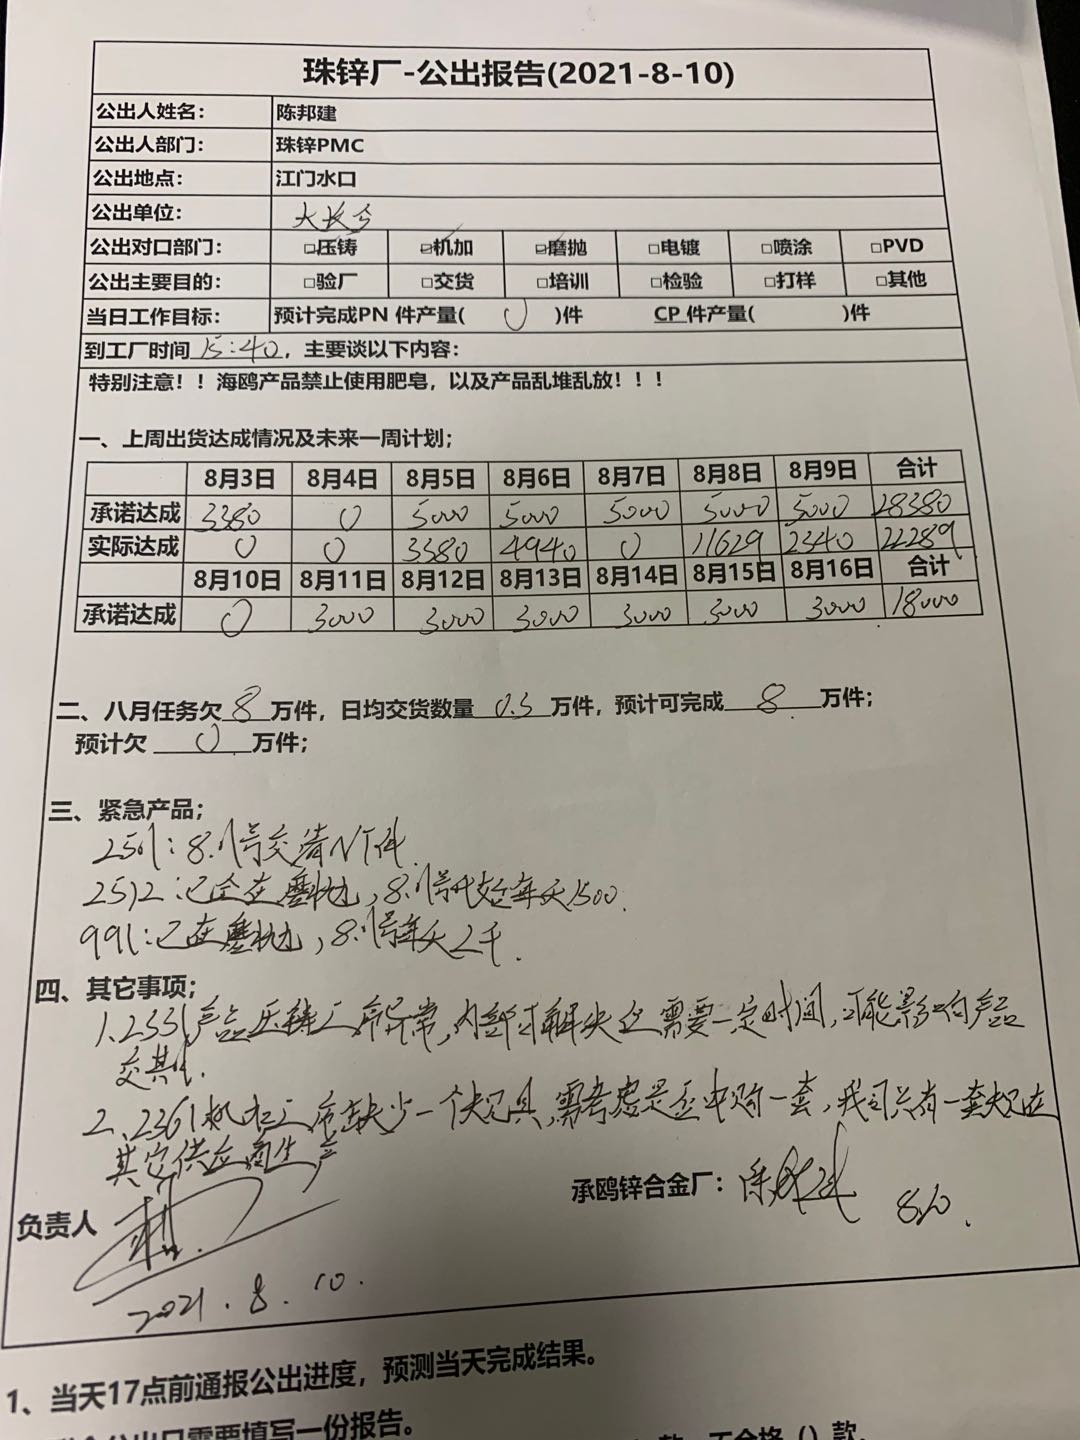 珠锌厂-公出报告(2021-8-10)
公出人姓名： 陈邦建
公出人部门： 珠锌PMC
公出地点： 江门水口
公出单位： 大长今
公出对口部门： □压铸 ☑机加 ☑磨抛 □电镀 □喷涂 □PVD
公出主要目的： □验厂 □交货 □培训 □检验 □打样 □其他
当日工作目标： 预计完成PN 件产量( 0 )件 CP 件产量( )件
到工厂时间 15:40 ，主要谈以下内容：
特别注意！！海鸥产品禁止使用肥皂，以及产品乱堆乱放！！！
一、上周出货达成情况及未来一周计划；
8月3日 8月4日 8月5日 8月6日 8月7日 8月8日 8月9日 合计
承诺达成 3380 0 5000 5000 5000 5000 5000 28380
实际达成 0 0 3380 4940 0 11629 2340 22289
8月10日 8月11日 8月12日 8月13日 8月14日 8月15日 8月16日 合计
承诺达成 0 3000 3000 3000 3000 3000 3000 18000
二、八月任务欠 8 万件，日均交货数量 0.5 万件，预计可完成 8 万件；
预计欠 0 万件；
三、紧急产品；
号交清NT件
2512：已全在磨抛，号开始每天1500.
991：已在磨抛，号每天2千.
四、其它事项；
1、2331产品压铸厂有异常，内部才解决，需要一定时间，可能影响产品
交期.
2、2361机加厂有缺少一个夹刀具，需考虑是否申购一套，我司只有一套夹刀在
其它供应商生产
负责人
承鸥锌合金厂：陈邦建 8.10.
2021.8.10.
1、当天17点前通报公出进度，预测当天完成结果。
公出只需要填写一份报告。
款，不合格（）款。